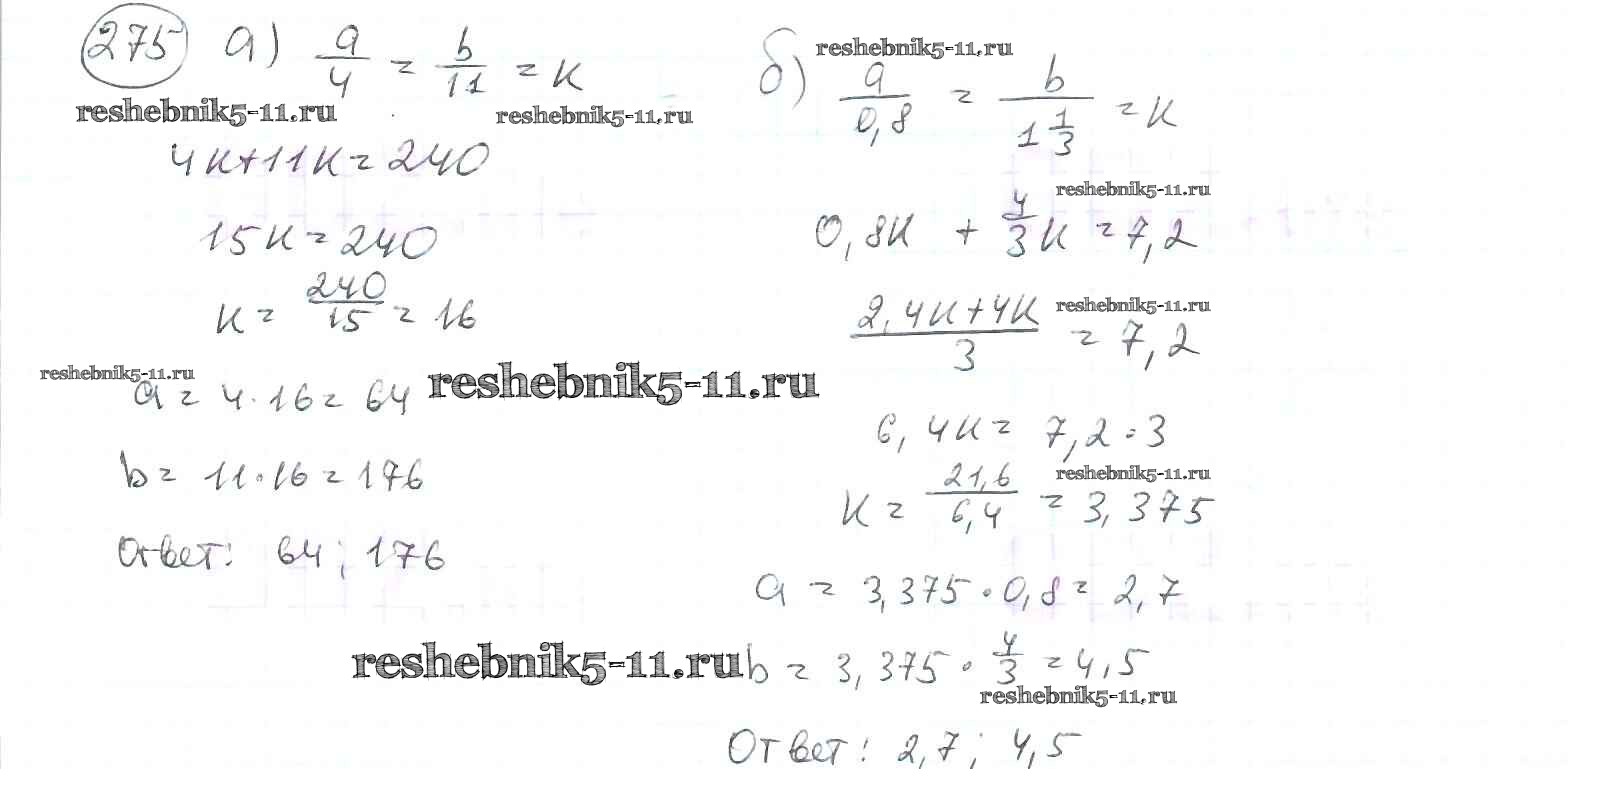 275 а) a/4 = b/11 = к
reshebnik5-11.ru reshebnik5-11.ru
4к+11к = 240
15к = 240
к = 240/15 = 16
reshebnik5-11.ru
a = 4·16 = 64
reshebnik5-11.ru
b = 11·16 = 176
Ответ: 64; 176
reshebnik5-11.ru
б) a/0,8 = b/1 1/3 = к
reshebnik5-11.ru
0,8к + 4/3 к = 7,2
reshebnik5-11.ru
2,4к+4к/3 = 7,2
6,4к = 7,2·3
reshebnik5-11.ru
к = 21,6/6,4 = 3,375
a = 3,375·0,8 = 2,7
reshebnik5-11.ru
b = 3,375·4/3 = 4,5
reshebnik5-11.ru
Ответ: 2,7; 4,5